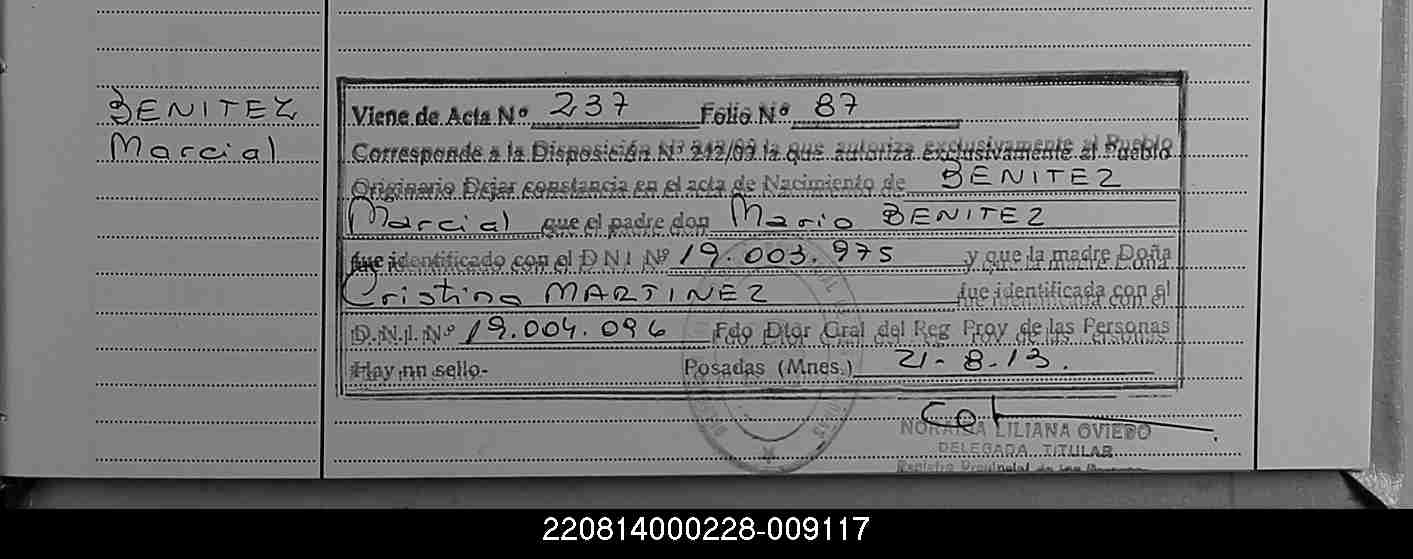 BENITEZ
Marcial
Viene de Acta Nº 237 Folio Nº 87
Corresponde a la Disposición Nº 242/09 la que autoriza exclusivamente al Pueblo
Originario Dejar constancia en el acta de Nacimiento de BENITEZ
Marcial que el padre don Mario BENITEZ
fue identificado con el D N I Nº 19.003.975 y que la madre Doña
Cristina MARTINEZ fue identificada con el
D.N.I. Nº 19.004.096 Fdo Dtor Gral del Reg Prov de las Personas
Hay un sello- Posadas (Mnes.) 21-8-13.
LILIANA OVIEDO
DELEGADA TITULAR
Registro Provincial de las Personas
220814000228-009117